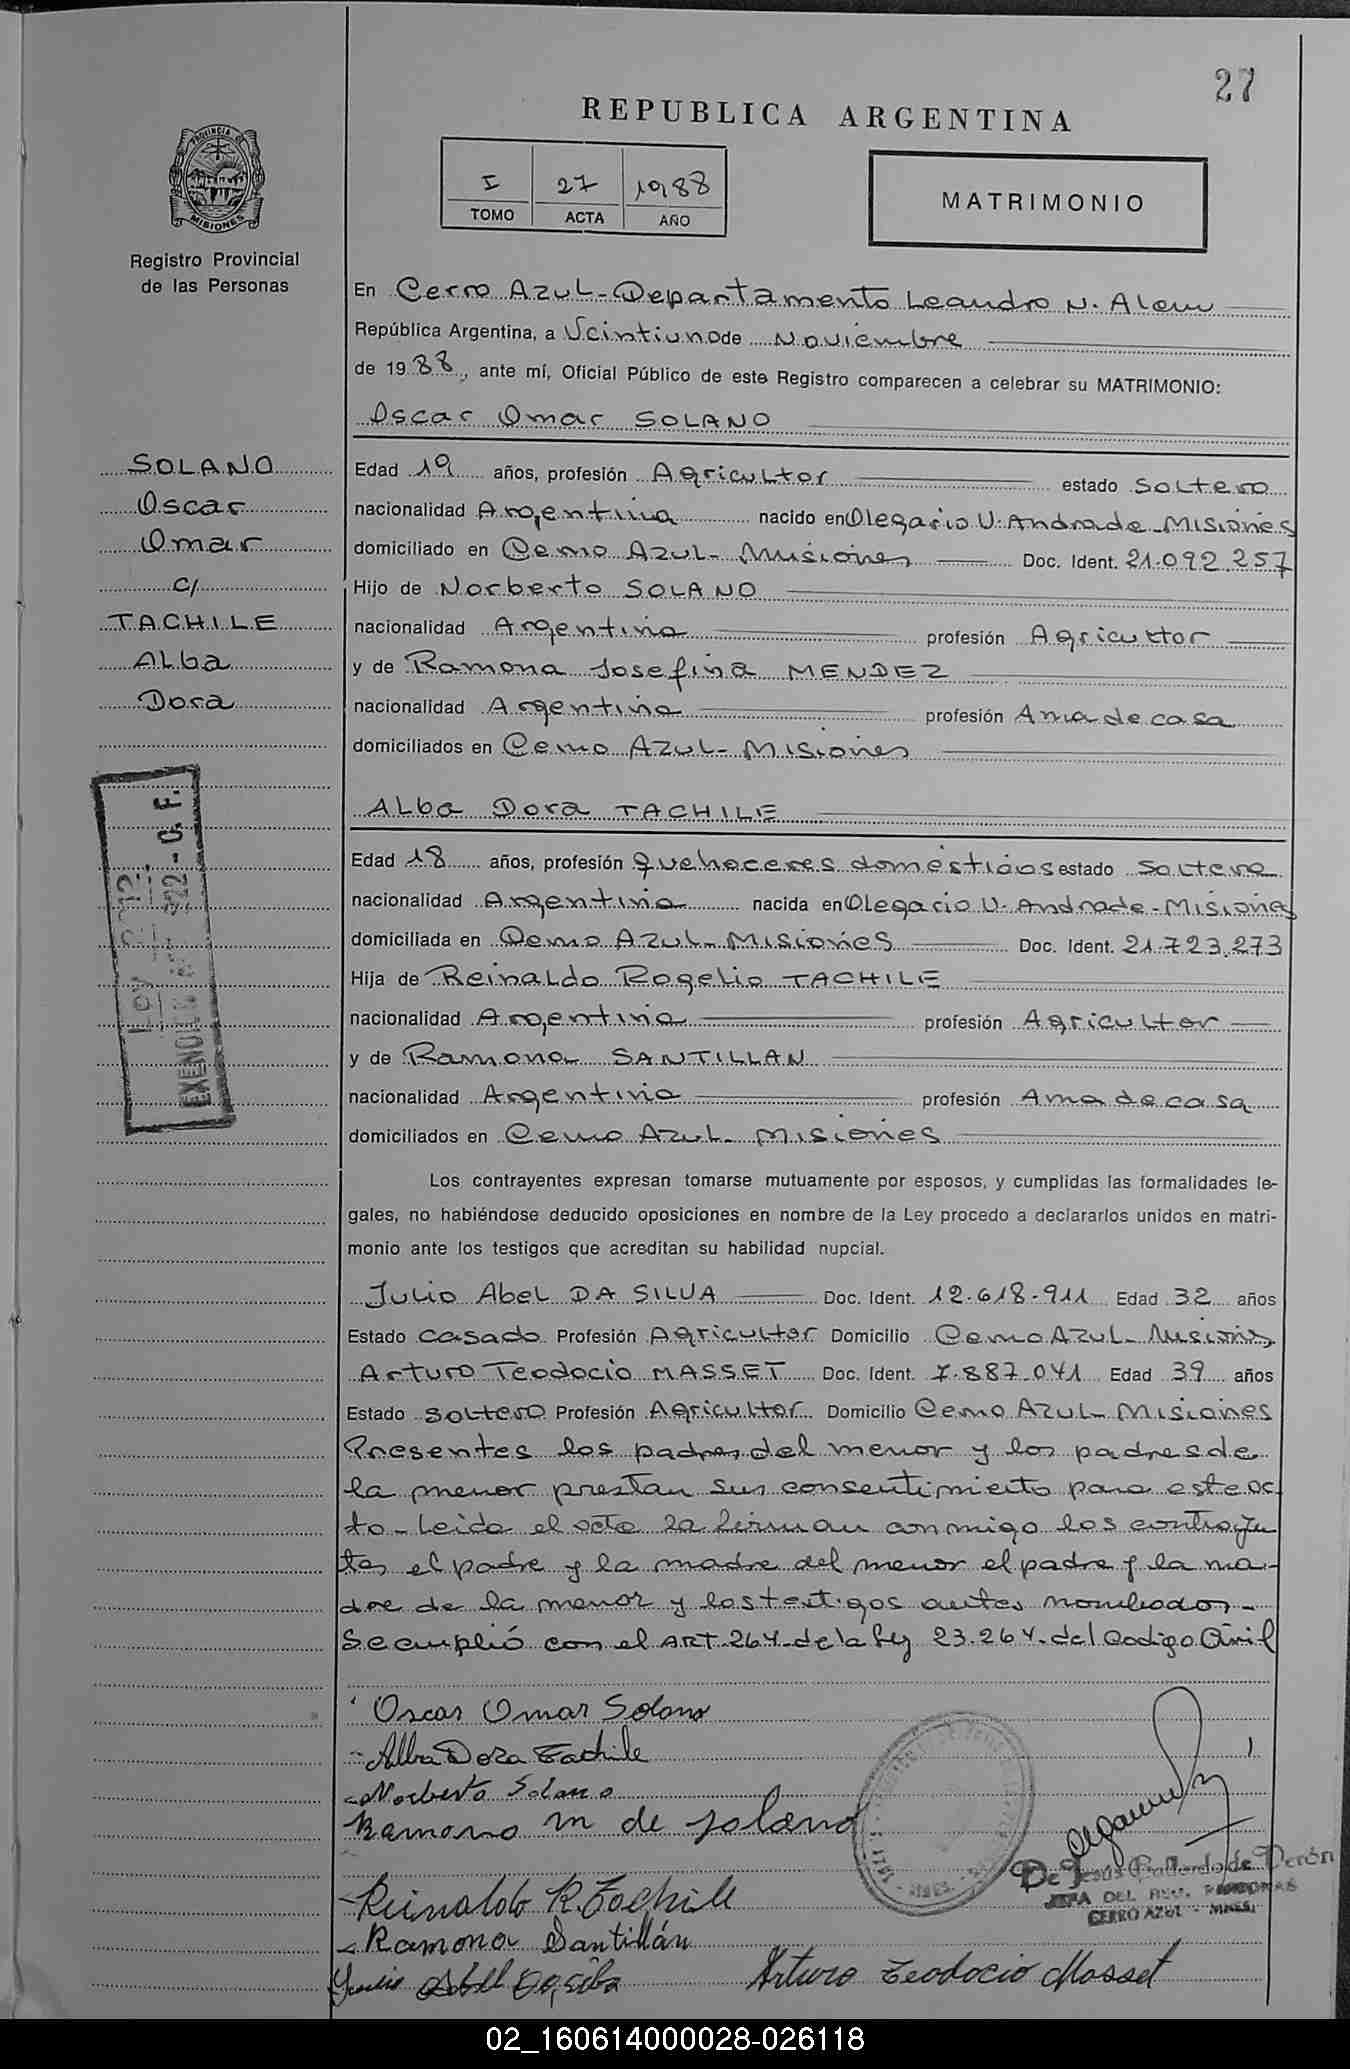 27
REPUBLICA ARGENTINA
PROVINCIA DE
MISIONES
Registro Provincial
de las Personas
I 27 1988
TOMO ACTA AÑO
MATRIMONIO
En Cerro Azul - Departamento Leandro N. Alem
República Argentina, a Veintiuno de Noviembre
de 1988, ante mí, Oficial Público de este Registro comparecen a celebrar su MATRIMONIO:
Oscar Omar SOLANO
SOLANO
Oscar
Omar
c/
TACHILE
Alba
Dora
Edad 19 años, profesión Agricultor estado Soltero
nacionalidad Argentina nacido en Olegario V. Andrade - Misiones
domiciliado en Cerro Azul - Misiones Doc. Ident. 21.092.257
Hijo de Norberto SOLANO
nacionalidad Argentina profesión Agricultor
y de Ramona Josefina MENDEZ
nacionalidad Argentina profesión Ama de casa
domiciliados en Cerro Azul - Misiones
Alba Dora TACHILE
Edad 18 años, profesión quehaceres domésticos estado Soltera
nacionalidad Argentina nacida en Olegario V. Andrade - Misiones
domiciliada en Cerro Azul - Misiones Doc. Ident. 21.723.273
Hija de Reinaldo Rogelio TACHILE
nacionalidad Argentina profesión Agricultor
y de Ramona SANTILLAN
nacionalidad Argentina profesión Ama de casa
domiciliados en Cerro Azul - Misiones
Los contrayentes expresan tomarse mutuamente por esposos, y cumplidas las formalidades le-
gales, no habiéndose deducido oposiciones en nombre de la Ley procedo a declararlos unidos en matri-
monio ante los testigos que acreditan su habilidad nupcial.
Julio Abel DA SILVA Doc. Ident. 12.618.911 Edad 32 años
Estado Casado Profesión Agricultor Domicilio Cerro Azul - Misiones
Arturo Teodocio MASSET Doc. Ident. 7.887.041 Edad 39 años
Estado Soltero Profesión Agricultor Domicilio Cerro Azul - Misiones
Presentes los padres del menor y los padres de
la menor prestan sus consentimiento para este ac
to - Leida el acta la firman conmigo los contrayen
tes el padre y la madre del menor el padre y la ma-
dre de la menor y los testigos antes nombrados -
Se cumplió con el ART. 264 - de la ley 23.264 - del Codigo Civil
Oscar Omar Solano
Alba Dora Tachile
Norberto Solano
Ramona M de Solano
Reinaldo R. Tachile
Ramona Santillán
Julio Abel Da Silba
Arturo Teodocio Masset
De Jesús Gallardo de Perón
JEFA DEL REG. PERSONAS
CERRO AZUL - MNES.
02_160614000028-026118